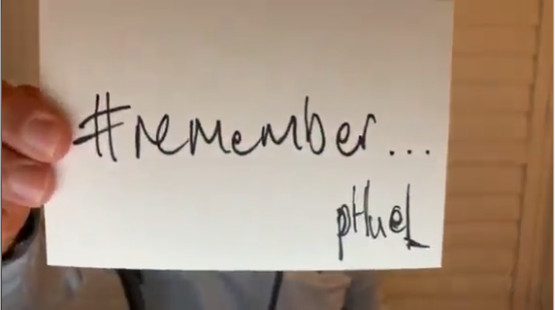 #remember...
pHueL